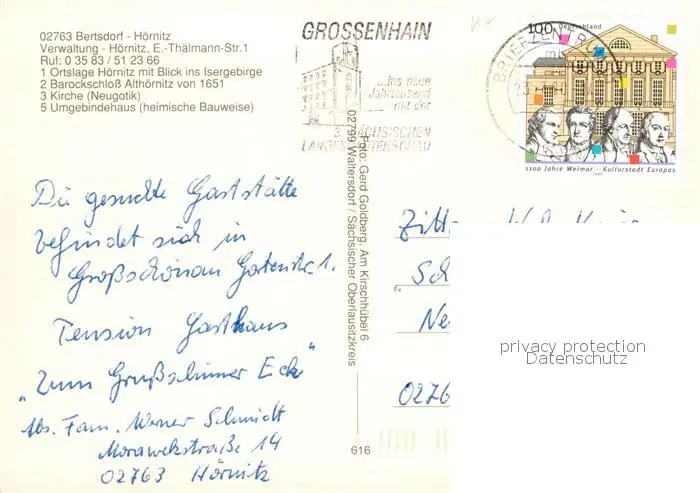 02763 Bertsdorf - Hörnitz
Verwaltung - Hörnitz, E.-Thälmann-Str.1
Ruf: 0 35 83 / 51 23 66
1 Ortslage Hörnitz mit Blick ins Isergebirge
2 Barockschloß Althörnitz von 1651
3 Kirche (Neugotik)
5 Umgebindehaus (heimische Bauweise)
GROSSENHAIN
...ins neue
Jahrtausend
mit der
3. SÄCHSISCHEN
LANDESGARTENSCHAU
BRIEFZENTRUM
100 Deutschland
1100 Jahre Weimar – Kulturstadt Europas
1999
Foto: Gerd Goldberg, Am Kirschhübel 6
02799 Waltersdorf / Sächsischer Oberlausitzkreis
Die gesuchte Gaststätte
befindet sich in
Großschönau
Pension Gasthaus
"Zum Eck"
Abs. Fam. Werner Schmidt
Morawekstraße 14
02763 Hörnitz
Zitt
"Sch
Ne
0276
616
privacy protection
Datenschutz